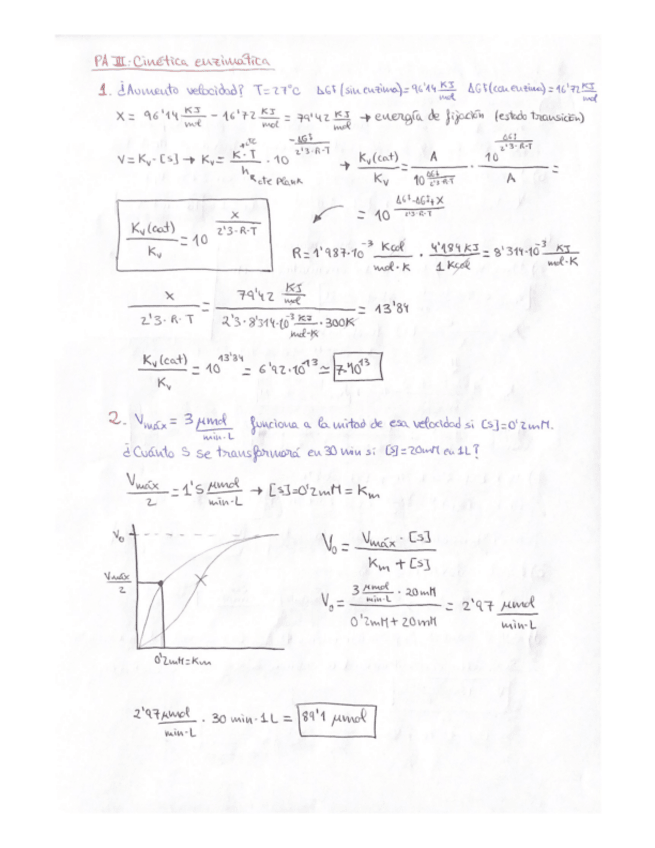 PA III: Cinética enzimática
1. ¿Aumento velocidad? T=27°C ΔG‡(sin enzima)=96'14 KJ/mol ΔG‡(con enzima)=16'72 KJ/mol
X = 96'14 KJ/mol - 16'72 KJ/mol = 79'42 KJ/mol → energía de fijación (estado transición)
V = Kv · [S] → Kv = K·T/h · 10^(-ΔG‡/2'3·R·T) → Kv(cat)/Kv = A/10^(ΔG‡/2'3·R·T) · 10^(ΔG‡/2'3·R·T)/A =
cte Plank
= 10^(ΔG‡-ΔG‡+X/2'3·R·T)
Kv(cat)/Kv = 10^(X/2'3·R·T)
R = 1'987·10^-3 Kcal/mol·K · 4'184 KJ/1 Kcal = 8'314·10^-3 KJ/mol·K
X/2'3·R·T = 79'42 KJ/mol / 2'3·8'314·10^-3 KJ/mol·K·300K = 13'84
Kv(cat)/Kv = 10^13'84 = 6'92·10^13 ≃ 7·10^13
2. Vmáx = 3 μmol/min·L funciona a la mitad de esa velocidad si [S]=0'2mM.
¿Cuánto S se transformará en 30 min si [S]=20mM en 1L?
Vmáx/2 = 1'5 μmol/min·L → [S]=0'2mM = Km
V0
Vmáx/2
0'2mM=Km
V0 = Vmáx · [S] / Km + [S]
V0 = 3 μmol/min·L · 20mM / 0'2mM + 20mM = 2'97 μmol/min·L
2'97 μmol/min·L · 30 min · 1L = 89'1 μmol